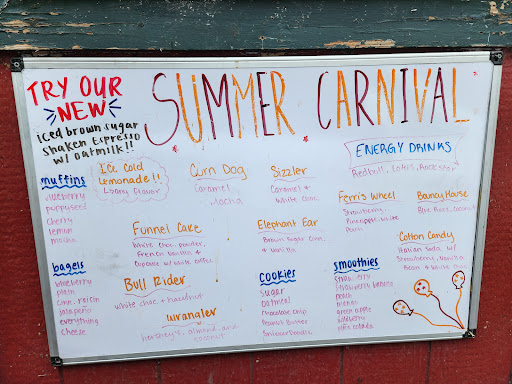 TRY OUR
NEW
SUMMER CARNIVAL
iced brown sugar
shaken espresso
w/ oatmilk!!
Ice Cold
Lemonade!!
flavor
Corn Dog
Caramel,
Mocha
Sizzler
Caramel +
White Choc.
ENERGY DRINKS
Redbull, Lotus, Rockstar
muffins
blueberry
poppyseed
cherry
lemon
mocha
Funnel Cake
White Choc. powder,
French Vanilla &
Cupcake w/ white coffee
Elephant Ear
Brown Sugar Cinn.
+ Vanilla
Ferris Wheel
Strawberry,
Pineapple, White
Peach
Bouncy House
Blue Razz, Coconut
Cotton Candy
Italian Soda w/
Strawberry, Vanilla
Bean & White Choc
bagels
blueberry
plain
cinn. raisin
jalapeño
everything
cheese
Bull Rider
White choc + hazelnut
Wrangler
hershey's, almond, and
coconut
cookies
sugar
oatmeal
Chocolate Chip
Peanut Butter
Snickerdoodle
smoothies
strawberry
strawberry banana
peach
mango
green apple
wildberry
piña colada